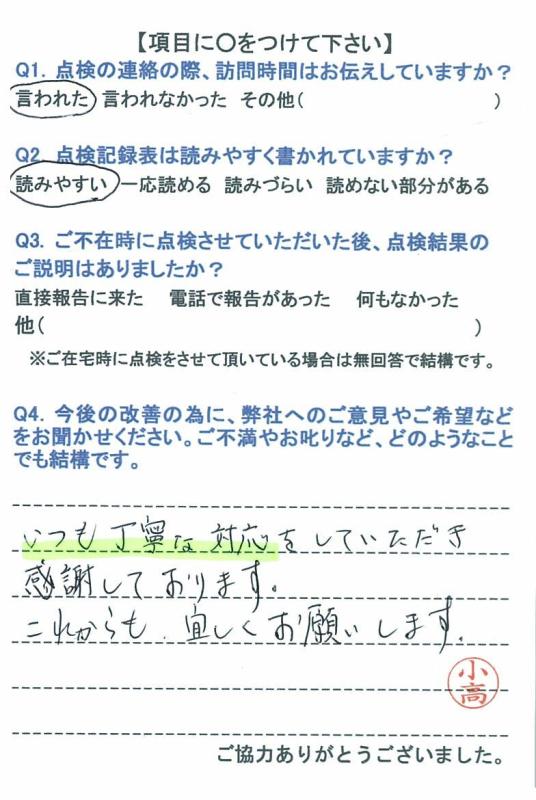 【項目に〇をつけて下さい】
Q1. 点検の連絡の際、訪問時間はお伝えしていますか？
言われた 言われなかった その他( )
Q2. 点検記録表は読みやすく書かれていますか？
読みやすい 一応読める 読みづらい 読めない部分がある
Q3. ご不在時に点検させていただいた後、点検結果の
ご説明はありましたか？
直接報告に来た 電話で報告があった 何もなかった
他( )
※ご在宅時に点検をさせて頂いている場合は無回答で結構です。
Q4. 今後の改善の為に、弊社へのご意見やご希望など
をお聞かせください。ご不満やお叱りなど、どのようなこと
でも結構です。
いつも丁寧な対応をしていただき
感謝しております。
これからも、宜しくお願いします。
小高
ご協力ありがとうございました。